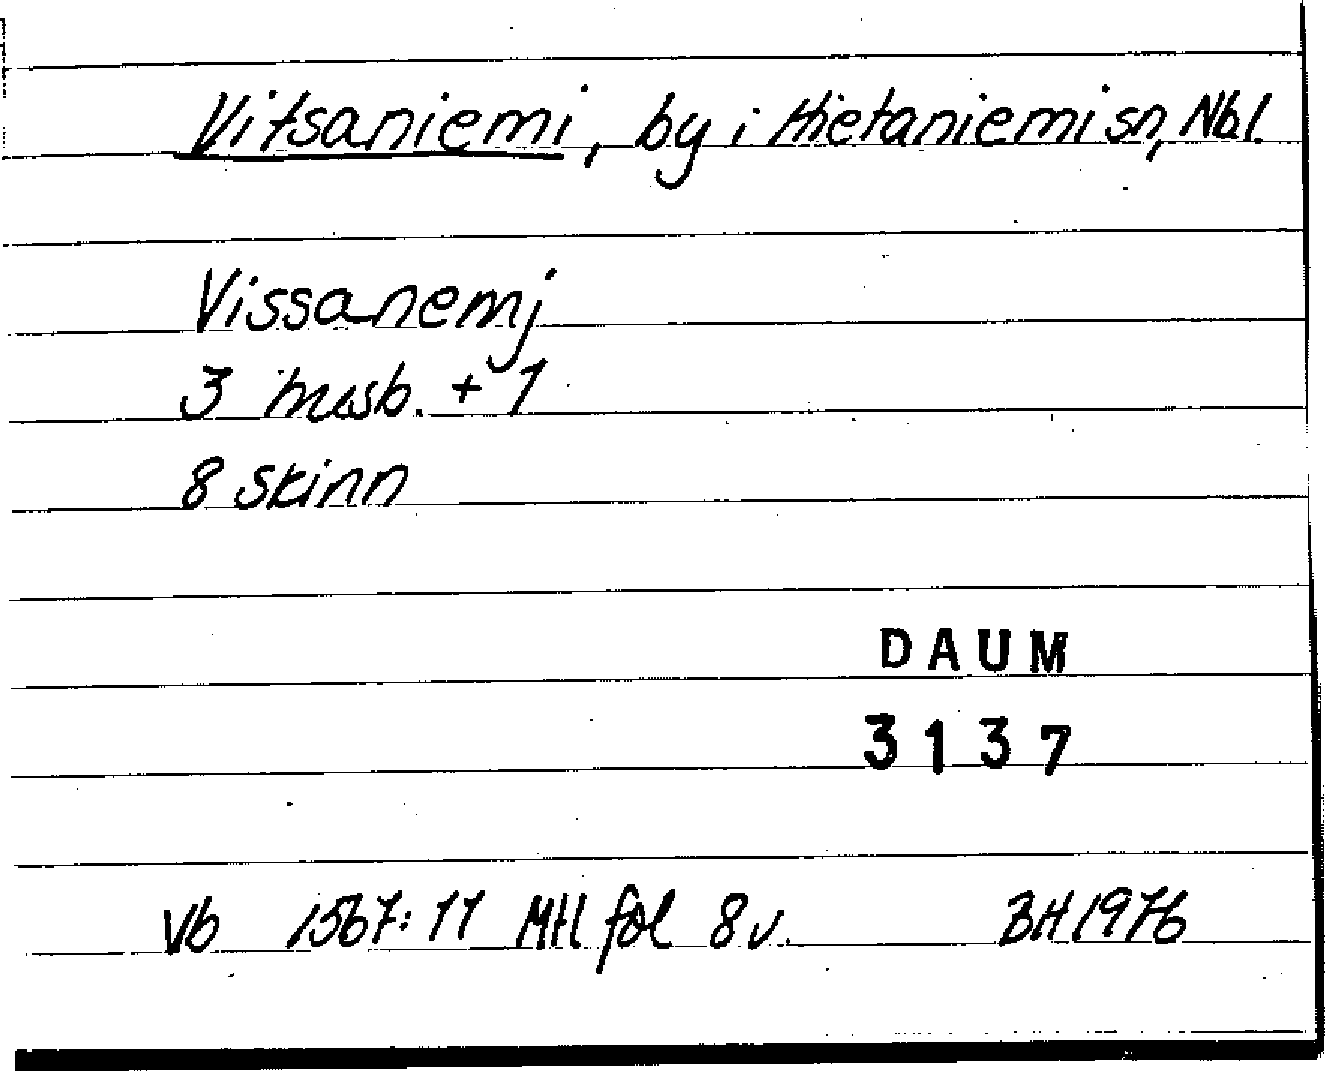 Vitsaniemi, by i Hietaniemi sn, Nbl.
Vissanemj
3 musb. + 1
8 skinn
DAUM
3137
Vb 1567:11 Mtl fol 8 v. BH 1976